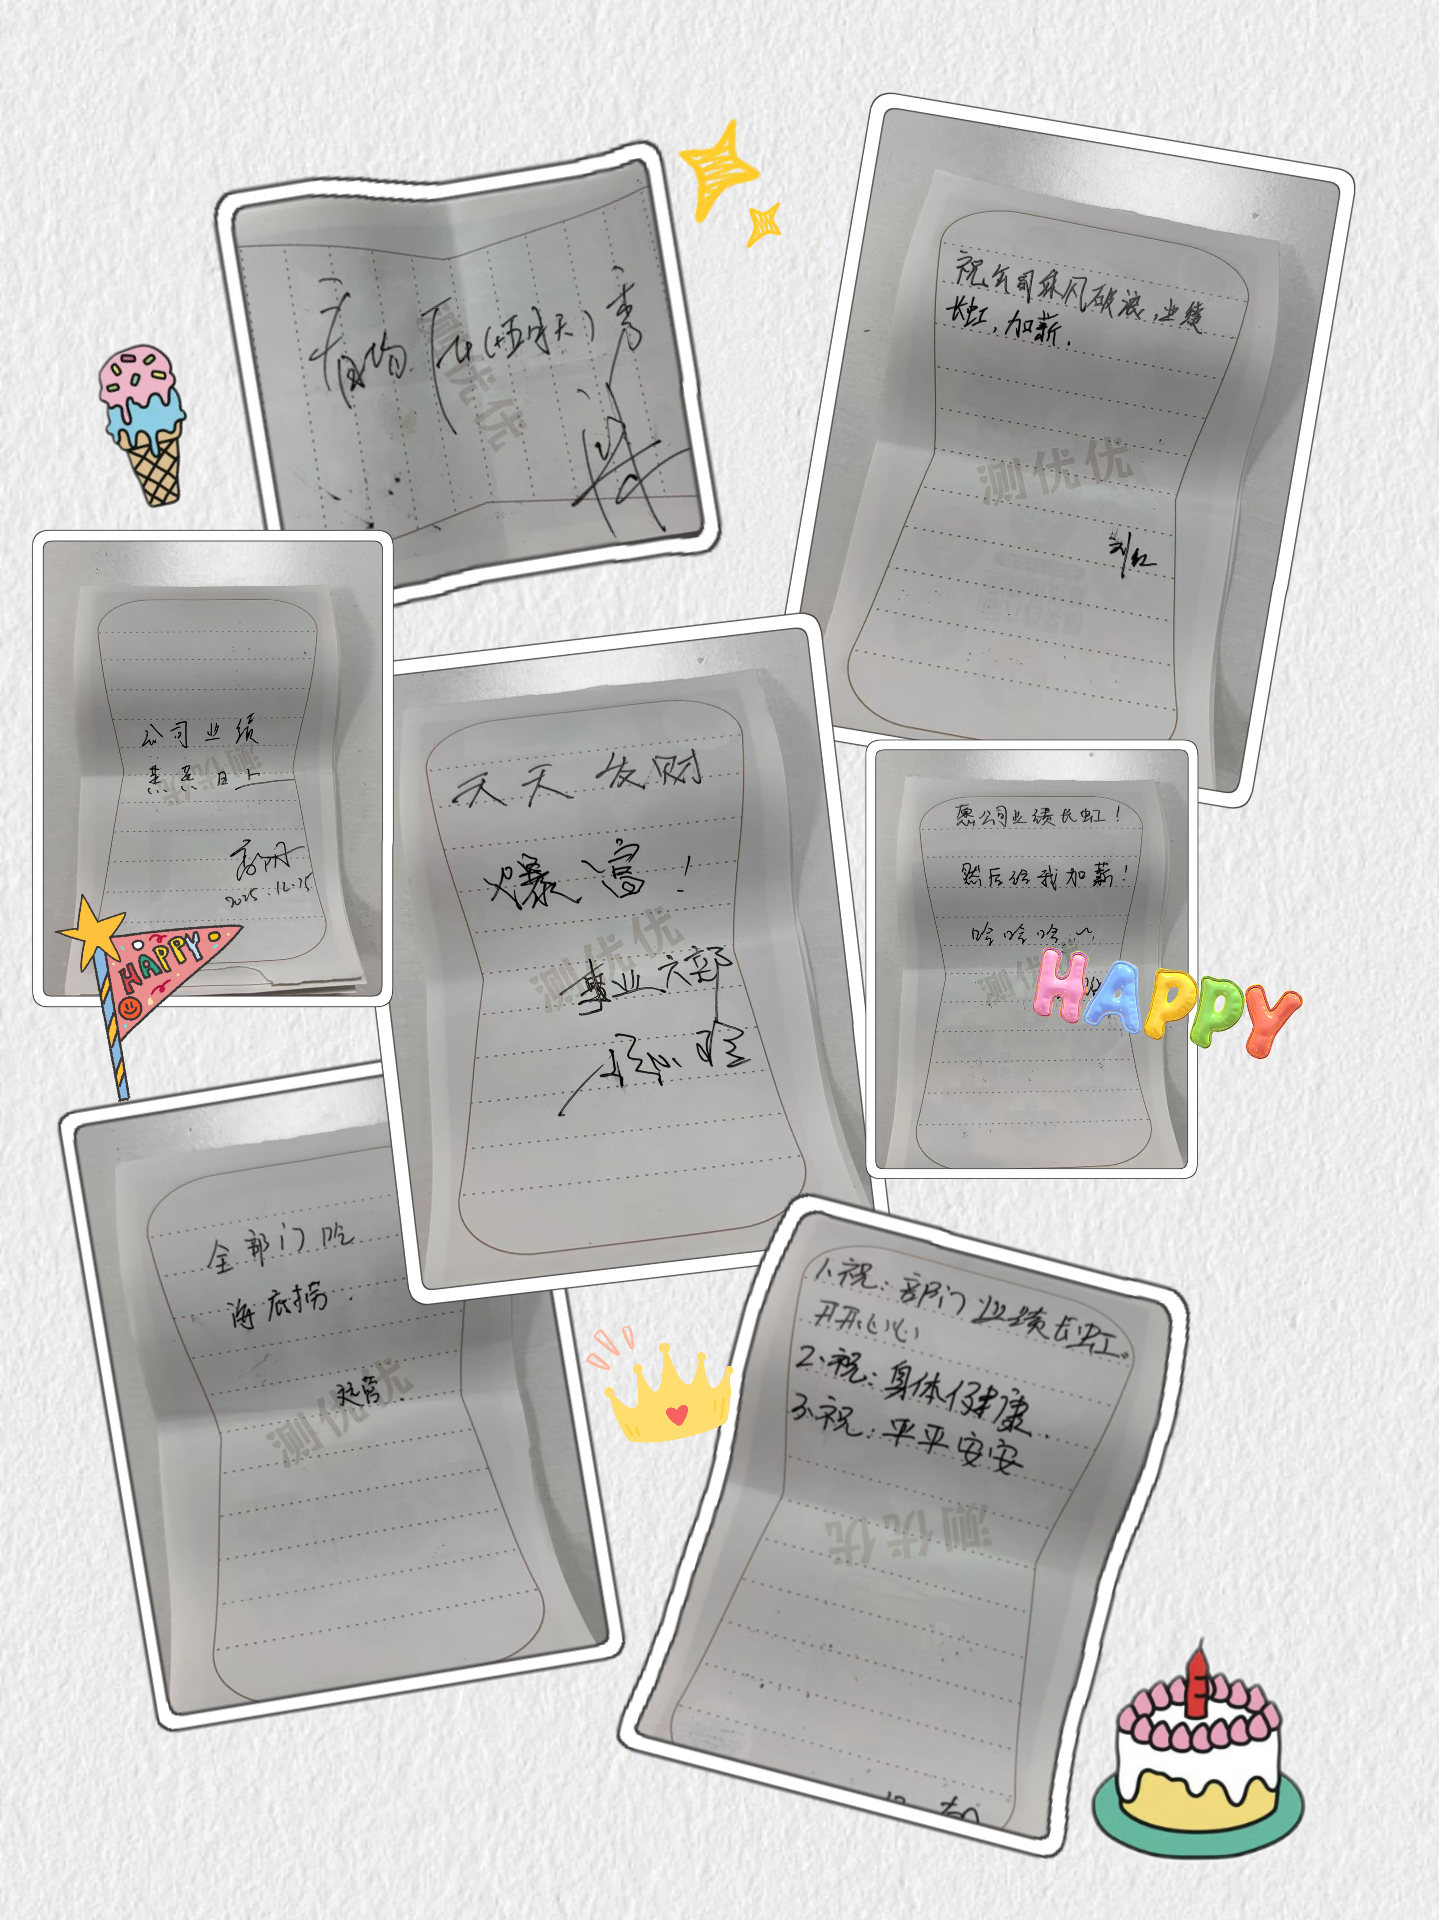 祝公司乘风破浪，业绩
长虹，加薪.
测优优
刘红
测优优
公司业绩
蒸蒸日上
测优优
2025.12.25
HAPPY
天天发财
爆富！
测优优
事业六部
愿公司业绩长虹！
然后给我加薪！
哈哈哈~
测优优
HAPPY
全部门吃
海底捞.
运营.
测优优
1、祝：部门业绩长虹。
开开心心
2、祝：身体健康.
3、祝：平平安安
测优优